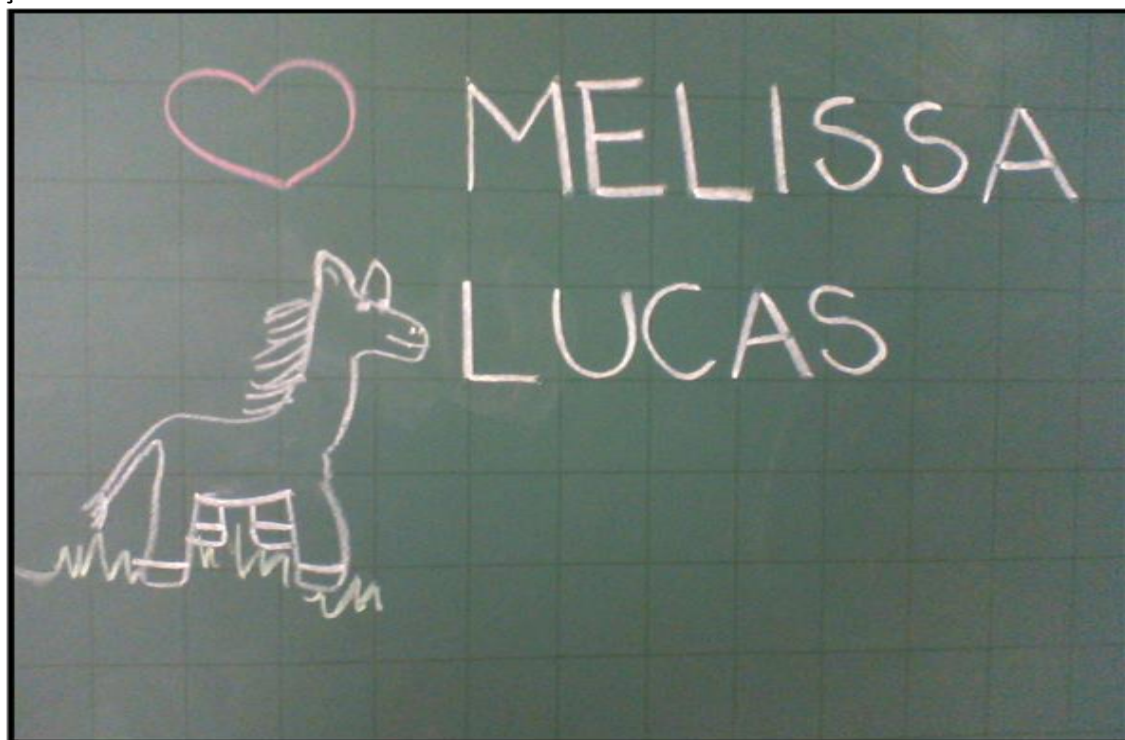 MELISSA
LUCAS